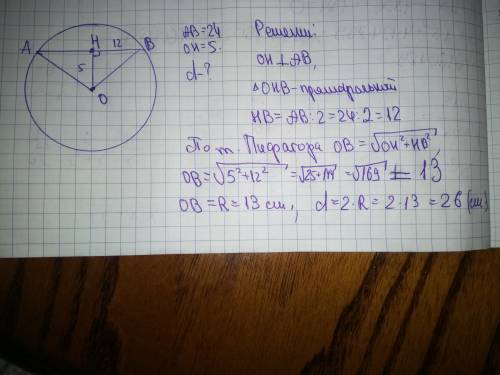 A H 12 B
5
O
AB=24
OH=5.
d-?
Решени:
OH⊥AB,
△OHB-прямоугольный
HB= AB:2=24:2=12
По т. Пифагора OB=√OH²+HB²,
OB=√5²+12² =√25+144 =√169 = 13
OB=R=13 см, d=2·R=2·13=26 (см)